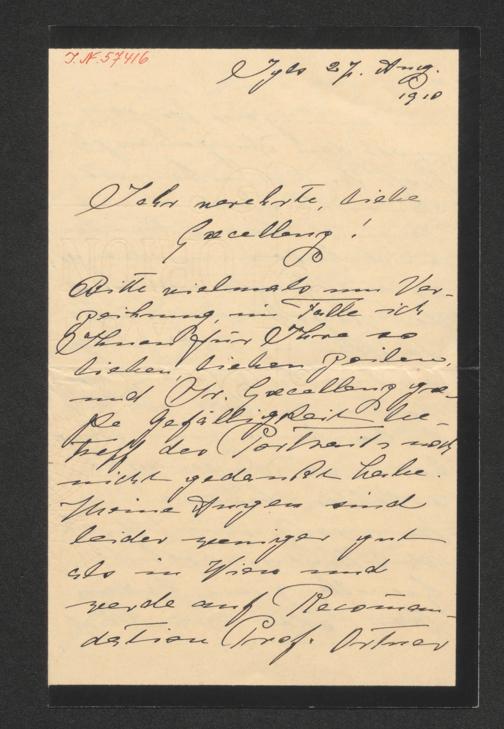 J.N. 57416
Igls 27. Aug.
1910
Sehr verehrte, liebe
Excellenz!
Bitte vielmals um Ver-
zeihung, im Falle ich
Ihnen für Ihre so
lieben, lieben Zeilen,
und Sr. Excellenz gro-
ße Gefälligkeit be-
treff des Portraits noch
nicht gedankt habe.
Meine Augen sind
leider weniger gut
als in Wien und
werde auf Recoman-
dation Prof. Ortner